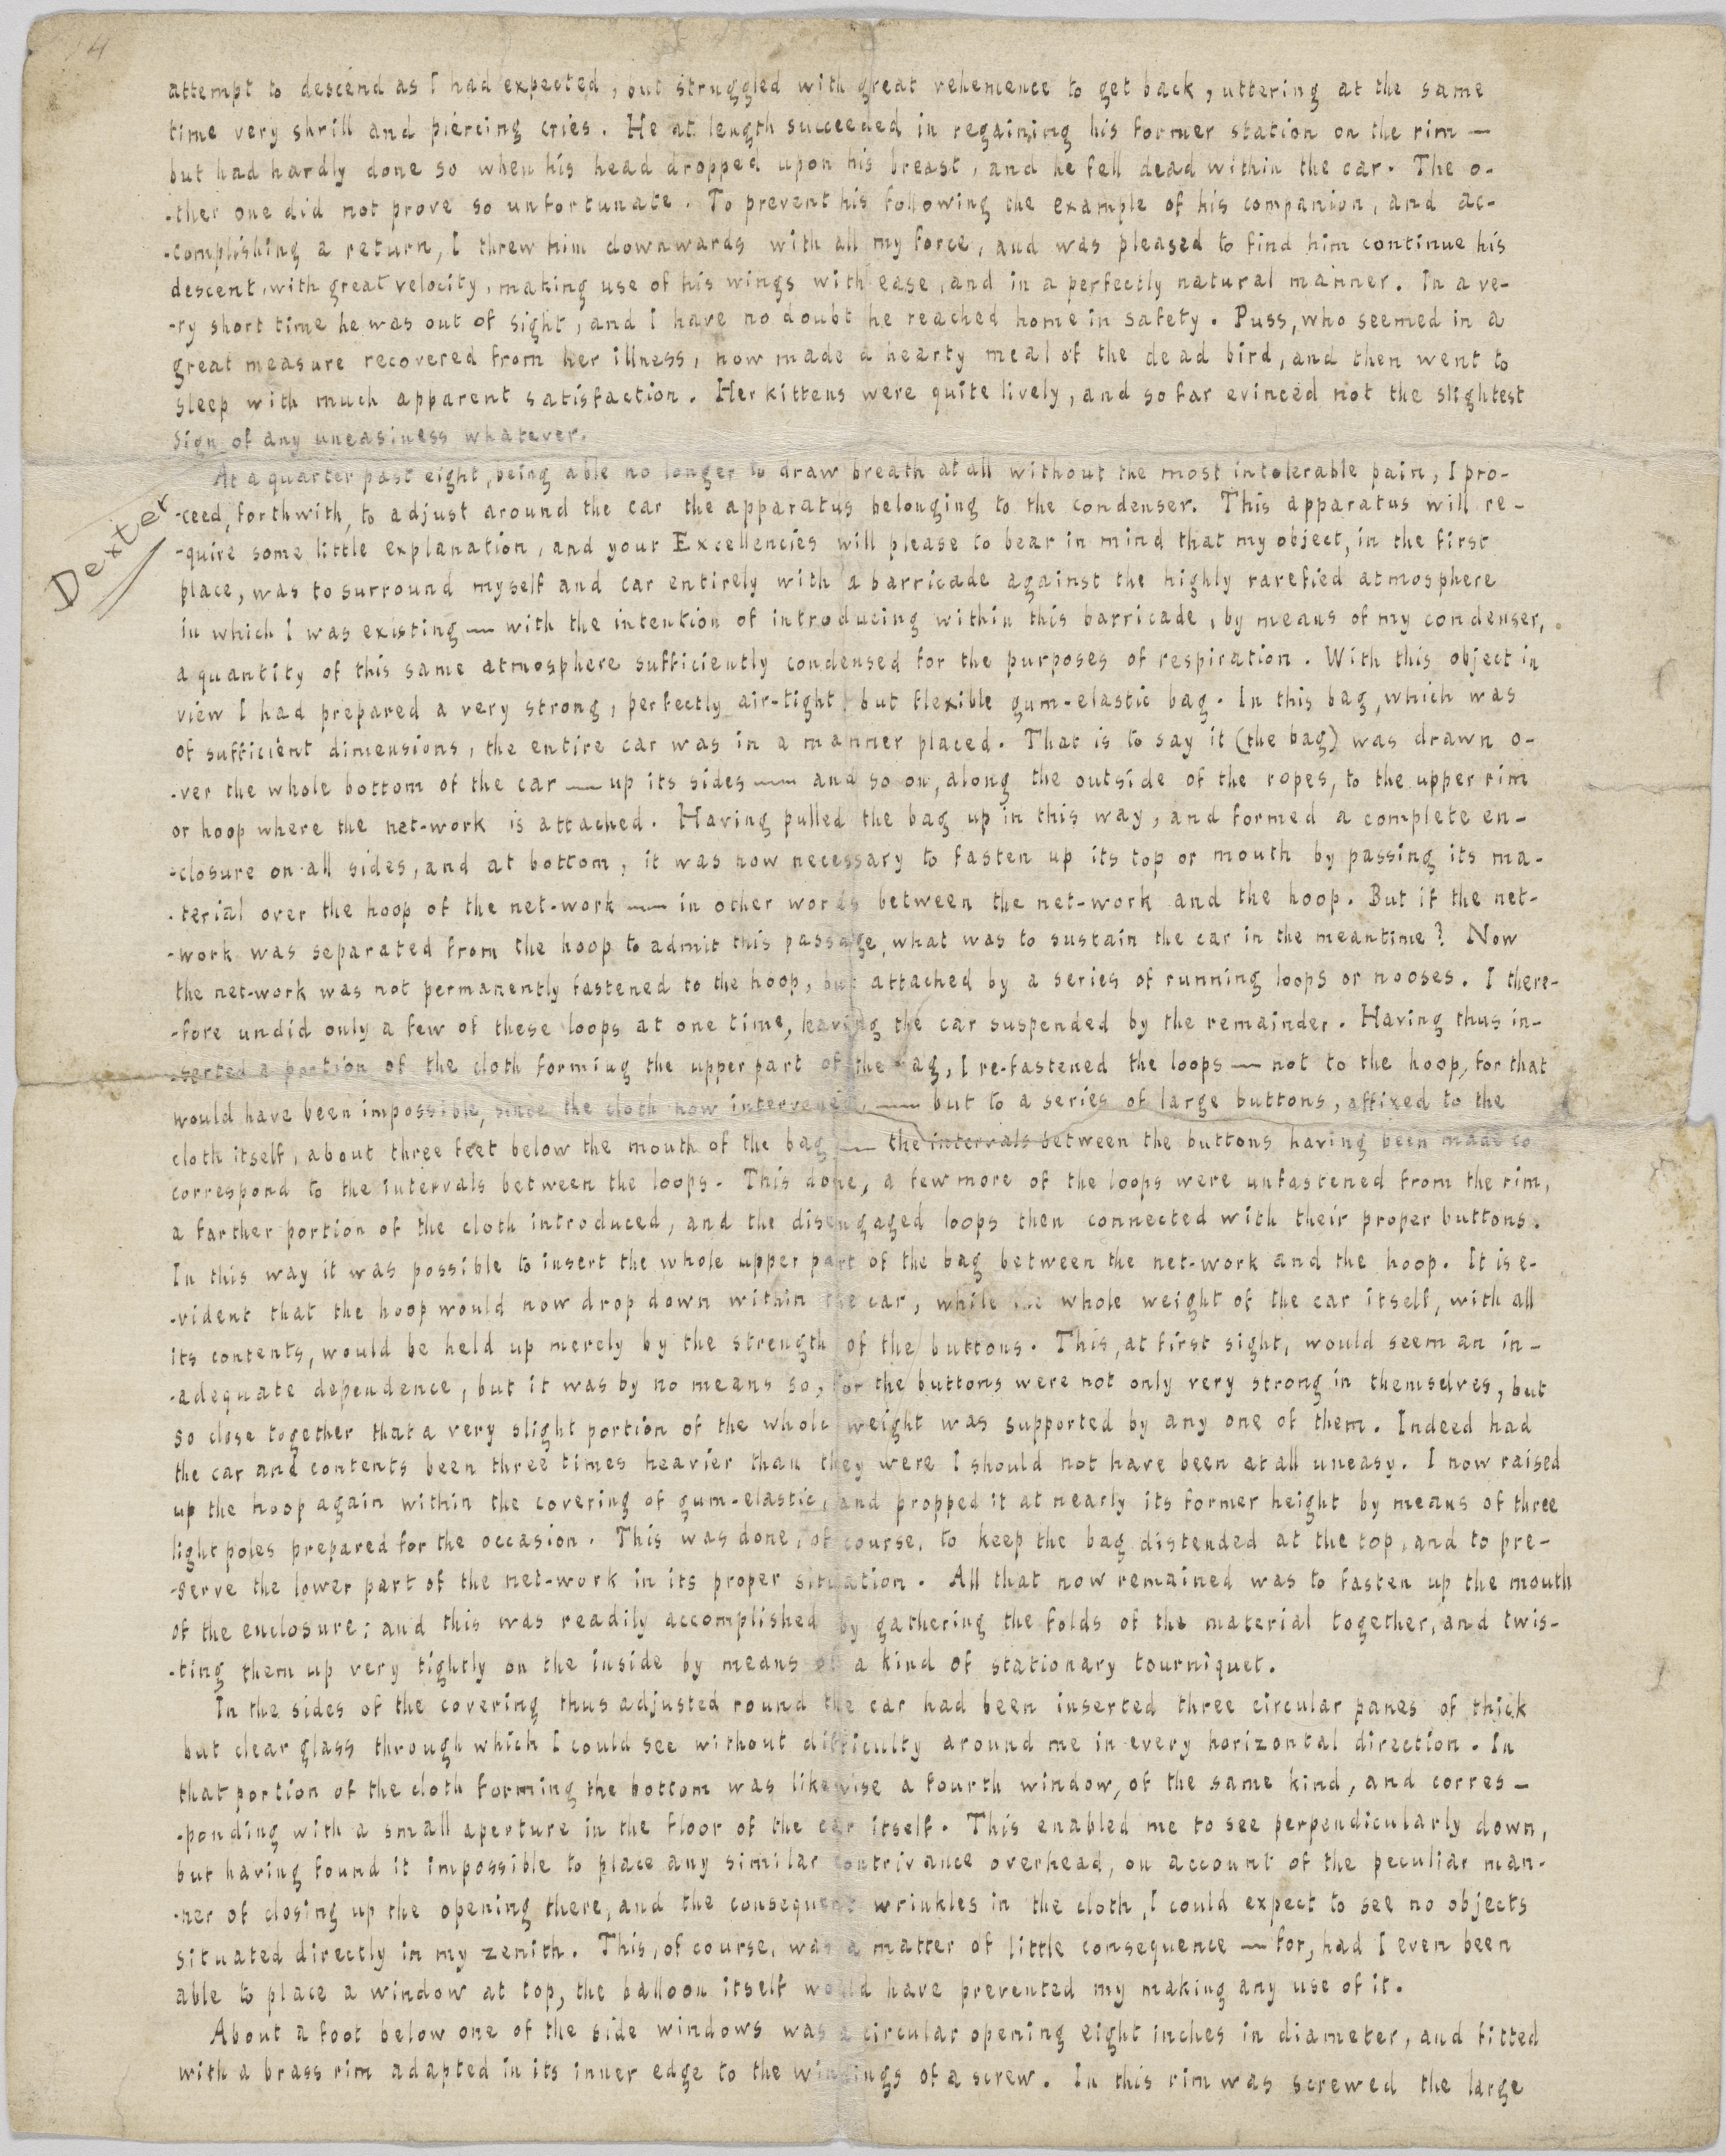 14
attempt to descend as I had expected, but struggled with great vehemence to get back, uttering at the same
time very shrill and piercing cries. He at length succeeded in regaining his former station on the rim —
but had hardly done so when his head dropped upon his breast, and he fell dead within the car. The o-
-ther one did not prove so unfortunate. To prevent his following the example of his companion, and ac-
-complishing a return, I threw him downwards with all my force, and was pleased to find him continue his
descent, with great velocity, making use of his wings with ease, and in a perfectly natural manner. In a ve-
-ry short time he was out of sight, and I have no doubt he reached home in safety. Puss, who seemed in a
great measure recovered from her illness, now made a hearty meal of the dead bird, and then went to
sleep with much apparent satisfaction. Her kittens were quite lively, and so far evinced not the slightest
sign of any uneasiness whatever.
At a quarter past eight, being able no longer to draw breath at all without the most intolerable pain, I pro-
Dexter
-ceed, forthwith, to adjust around the car the apparatus belonging to the condenser. This apparatus will re-
-quire some little explanation, and your Excellencies will please to bear in mind that my object, in the first
place, was to surround myself and car entirely with a barricade against the highly rarefied atmosphere
in which I was existing — with the intention of introducing within this barricade, by means of my condenser,
a quantity of this same atmosphere sufficiently condensed for the purposes of respiration. With this object in
view I had prepared a very strong, perfectly air-tight, but flexible gum-elastic bag. In this bag, which was
of sufficient dimensions, the entire car was in a manner placed. That is to say it (the bag) was drawn o-
-ver the whole bottom of the car — up its sides — and so on, along the outside of the ropes, to the upper rim
or hoop where the net-work is attached. Having pulled the bag up in this way, and formed a complete en-
-closure on all sides, and at bottom, it was now necessary to fasten up its top or mouth by passing its ma-
-terial over the hoop of the net-work — in other words between the net-work and the hoop. But if the net-
-work was separated from the hoop to admit this passage, what was to sustain the car in the meantime? Now
the net-work was not permanently fastened to the hoop, but attached by a series of running loops or nooses. I there-
-fore undid only a few of these loops at one time, leaving the car suspended by the remainder. Having thus in-
-serted a portion of the cloth forming the upper part of the bag, I re-fastened the loops — not to the hoop, for that
would have been impossible, since the cloth now intervened, — but to a series of large buttons, affixed to the
cloth itself, about three feet below the mouth of the bag — the intervals between the buttons having been made to
correspond to the intervals between the loops. This done, a few more of the loops were unfastened from the rim,
a farther portion of the cloth introduced, and the disengaged loops then connected with their proper buttons.
In this way it was possible to insert the whole upper part of the bag between the net-work and the hoop. It is e-
-vident that the hoop would now drop down within the car, while the whole weight of the car itself, with all
its contents, would be held up merely by the strength of the buttons. This, at first sight, would seem an in-
-adequate dependence, but it was by no means so, for the buttons were not only very strong in themselves, but
so close together that a very slight portion of the whole weight was supported by any one of them. Indeed had
the car and contents been three times heavier than they were I should not have been at all uneasy. I now raised
up the hoop again within the covering of gum-elastic, and propped it at nearly its former height by means of three
light poles prepared for the occasion. This was done, of course, to keep the bag distended at the top, and to pre-
-serve the lower part of the net-work in its proper situation. All that now remained was to fasten up the mouth
of the enclosure; and this was readily accomplished by gathering the folds of the material together, and twis-
-ting them up very tightly on the inside by means of a kind of stationary tourniquet.
In the sides of the covering thus adjusted round the car had been inserted three circular panes of thick
but clear glass through which I could see without difficulty around me in every horizontal direction. In
that portion of the cloth forming the bottom was likewise a fourth window, of the same kind, and corres-
-ponding with a small aperture in the floor of the car itself. This enabled me to see perpendicularly down,
but having found it impossible to place any similar contrivance overhead, on account of the peculiar man-
-ner of closing up the opening there, and the consequent wrinkles in the cloth, I could expect to see no objects
situated directly in my zenith. This, of course, was a matter of little consequence — for, had I even been
able to place a window at top, the balloon itself would have prevented my making any use of it.
About a foot below one of the side windows was a circular opening eight inches in diameter, and fitted
with a brass rim adapted in its inner edge to the windings of a screw. In this rim was screwed the large